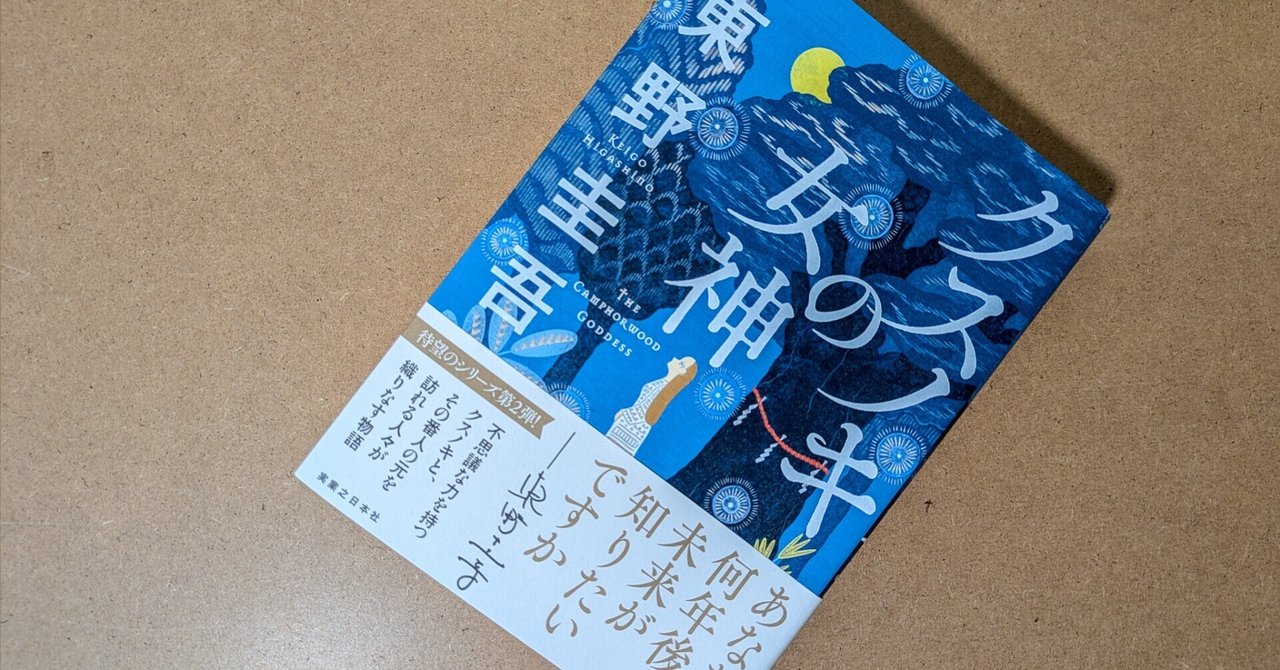 クスノキ
の
女神
THE
CAMPHORWOOD
GODDESS
東野圭吾
KEIGO
HIGASHINO
あな
何年後
未来が
知りたい
ですか
東野圭吾
待望のシリーズ第2弾!
不思議な力を持つ
クスノキと、
その番人の元を
訪れる人々が
織りなす物語
実業之日本社